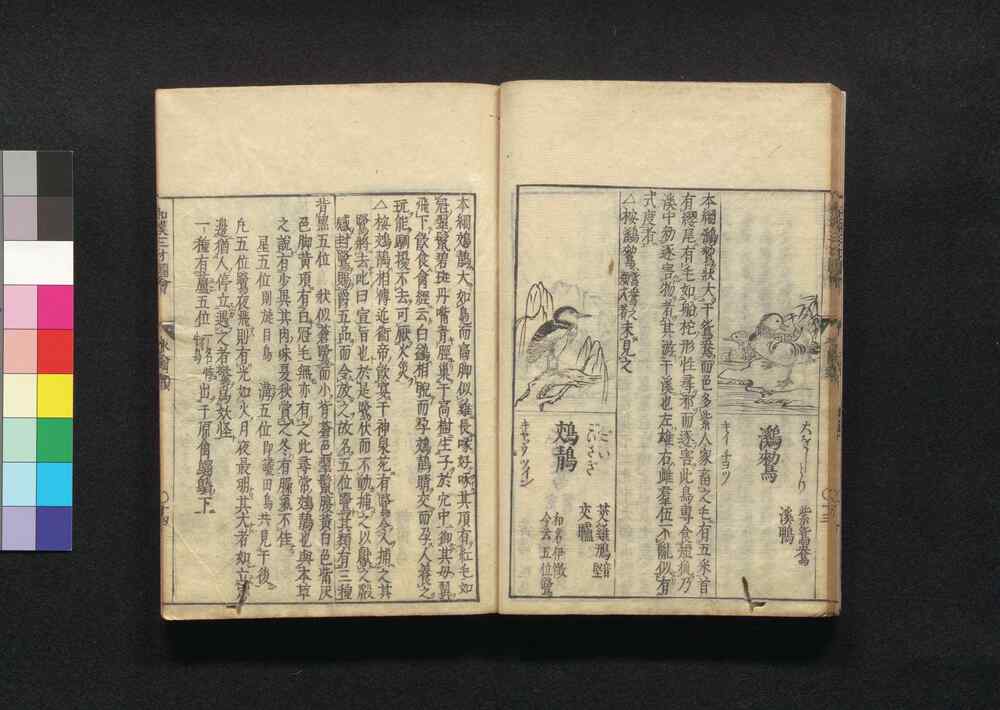 大をしとり
紫鴛鴦
溪鴨
鸂鷘
キイ チョッ
本綱鸂鷘狀大于鴛鴦而色多紫人家畜之毛有五采首
有纓尾有毛如船柁形性尋邪而逐害此鳥專食短狐乃
溪中勅逐害物者其游于溪也左雄右雌羣伍不亂似有
式度者
△按鸂鷘鴛鴦之類大者未見之
ごい
ごいさぎ
鵁鶄
キャウ ツイン
茭雞 鳽䴖
交矑
和名伊微
今云五位鷺
本綱鵁鶄大如鳬而高脚似雞長喙好啄其頂有紅毛如
冠翠鬣碧斑丹嘴青脛巢于高樹生子於穴中銜其母翼
飛下飲食禽經云白鷁相睨而孕鵁鶄睛交而孕人養之
玩能馴擾不去可厭火災
△按鵁鶄相傳近衞帝飲宴于神泉苑有鷺令人捕之其
鷺將去叱曰宣旨也於是鷺伏而不動捕之以獻之殿
感封鷺賜爵五品而令放之故名五位鷺其類有三種
背黑五位 狀似蒼鷺而小背蒼色翠鬣腹黃白色嘴灰
色脚黃頂有白冠毛無亦有之此尋常鵁鶄也與本草
之說有少異其肉味夏秋賞之冬有臊氣不佳
星五位則旋目鳥 溝五位即護田鳥共見于後
凡五位鷺夜飛則有光如火月夜最明其大者如立岸
邊猶人停立遇之者驚爲妖怪
一種有蘆五位
出于原禽鷃下